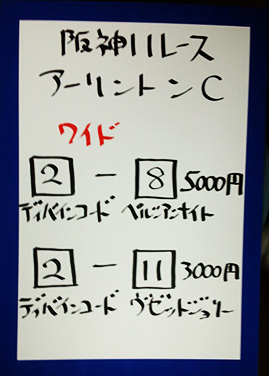 阪神11レース
アーリントンC
ワイド
2 - 8 5000円
ディバインコード ペルシアンナイト
2 - 11 3000円
ディバインコード ヴゼットジョリー